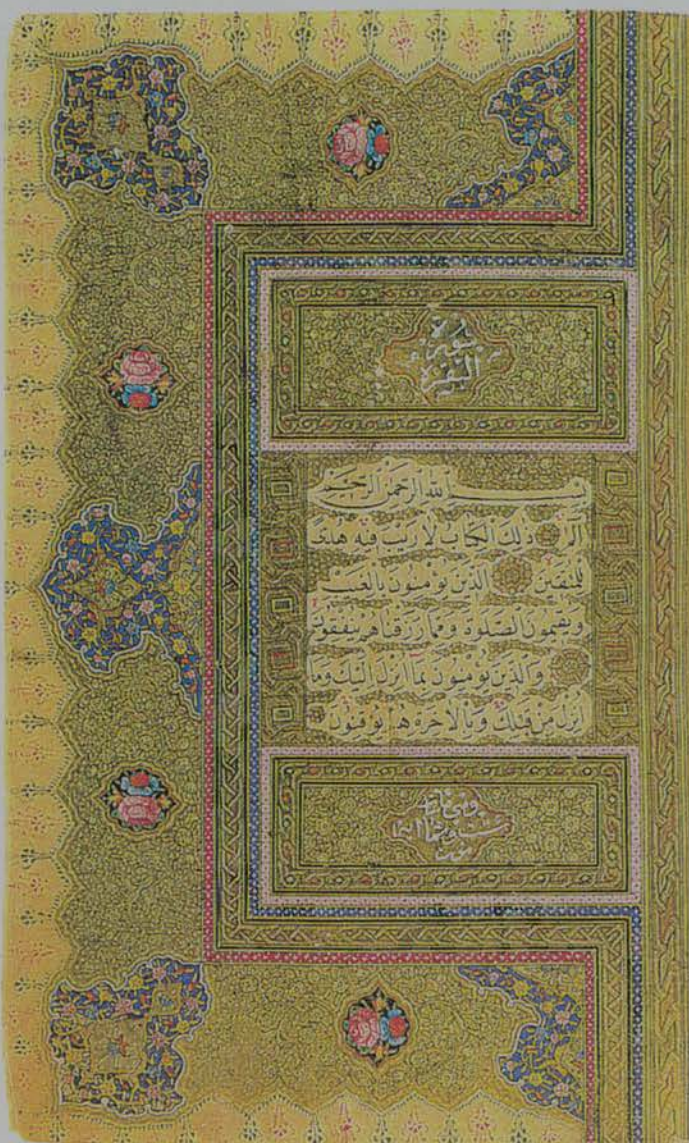 سورة
البقرة
بِسْمِ اللهِ الرَّحْمٰنِ الرَّحِيمِ
الم ذٰلِكَ الْكِتَابُ لَا رَيْبَ فِيهِ هُدًى
لِلْمُتَّقِينَ الَّذِينَ يُؤْمِنُونَ بِالْغَيْبِ
وَيُقِيمُونَ الصَّلٰوةَ وَمِمَّا رَزَقْنَاهُمْ يُنْفِقُونَ
وَالَّذِينَ يُؤْمِنُونَ بِمَا أُنْزِلَ إِلَيْكَ وَمَا
أُنْزِلَ مِنْ قَبْلِكَ وَبِالْآخِرَةِ هُمْ يُوقِنُونَ